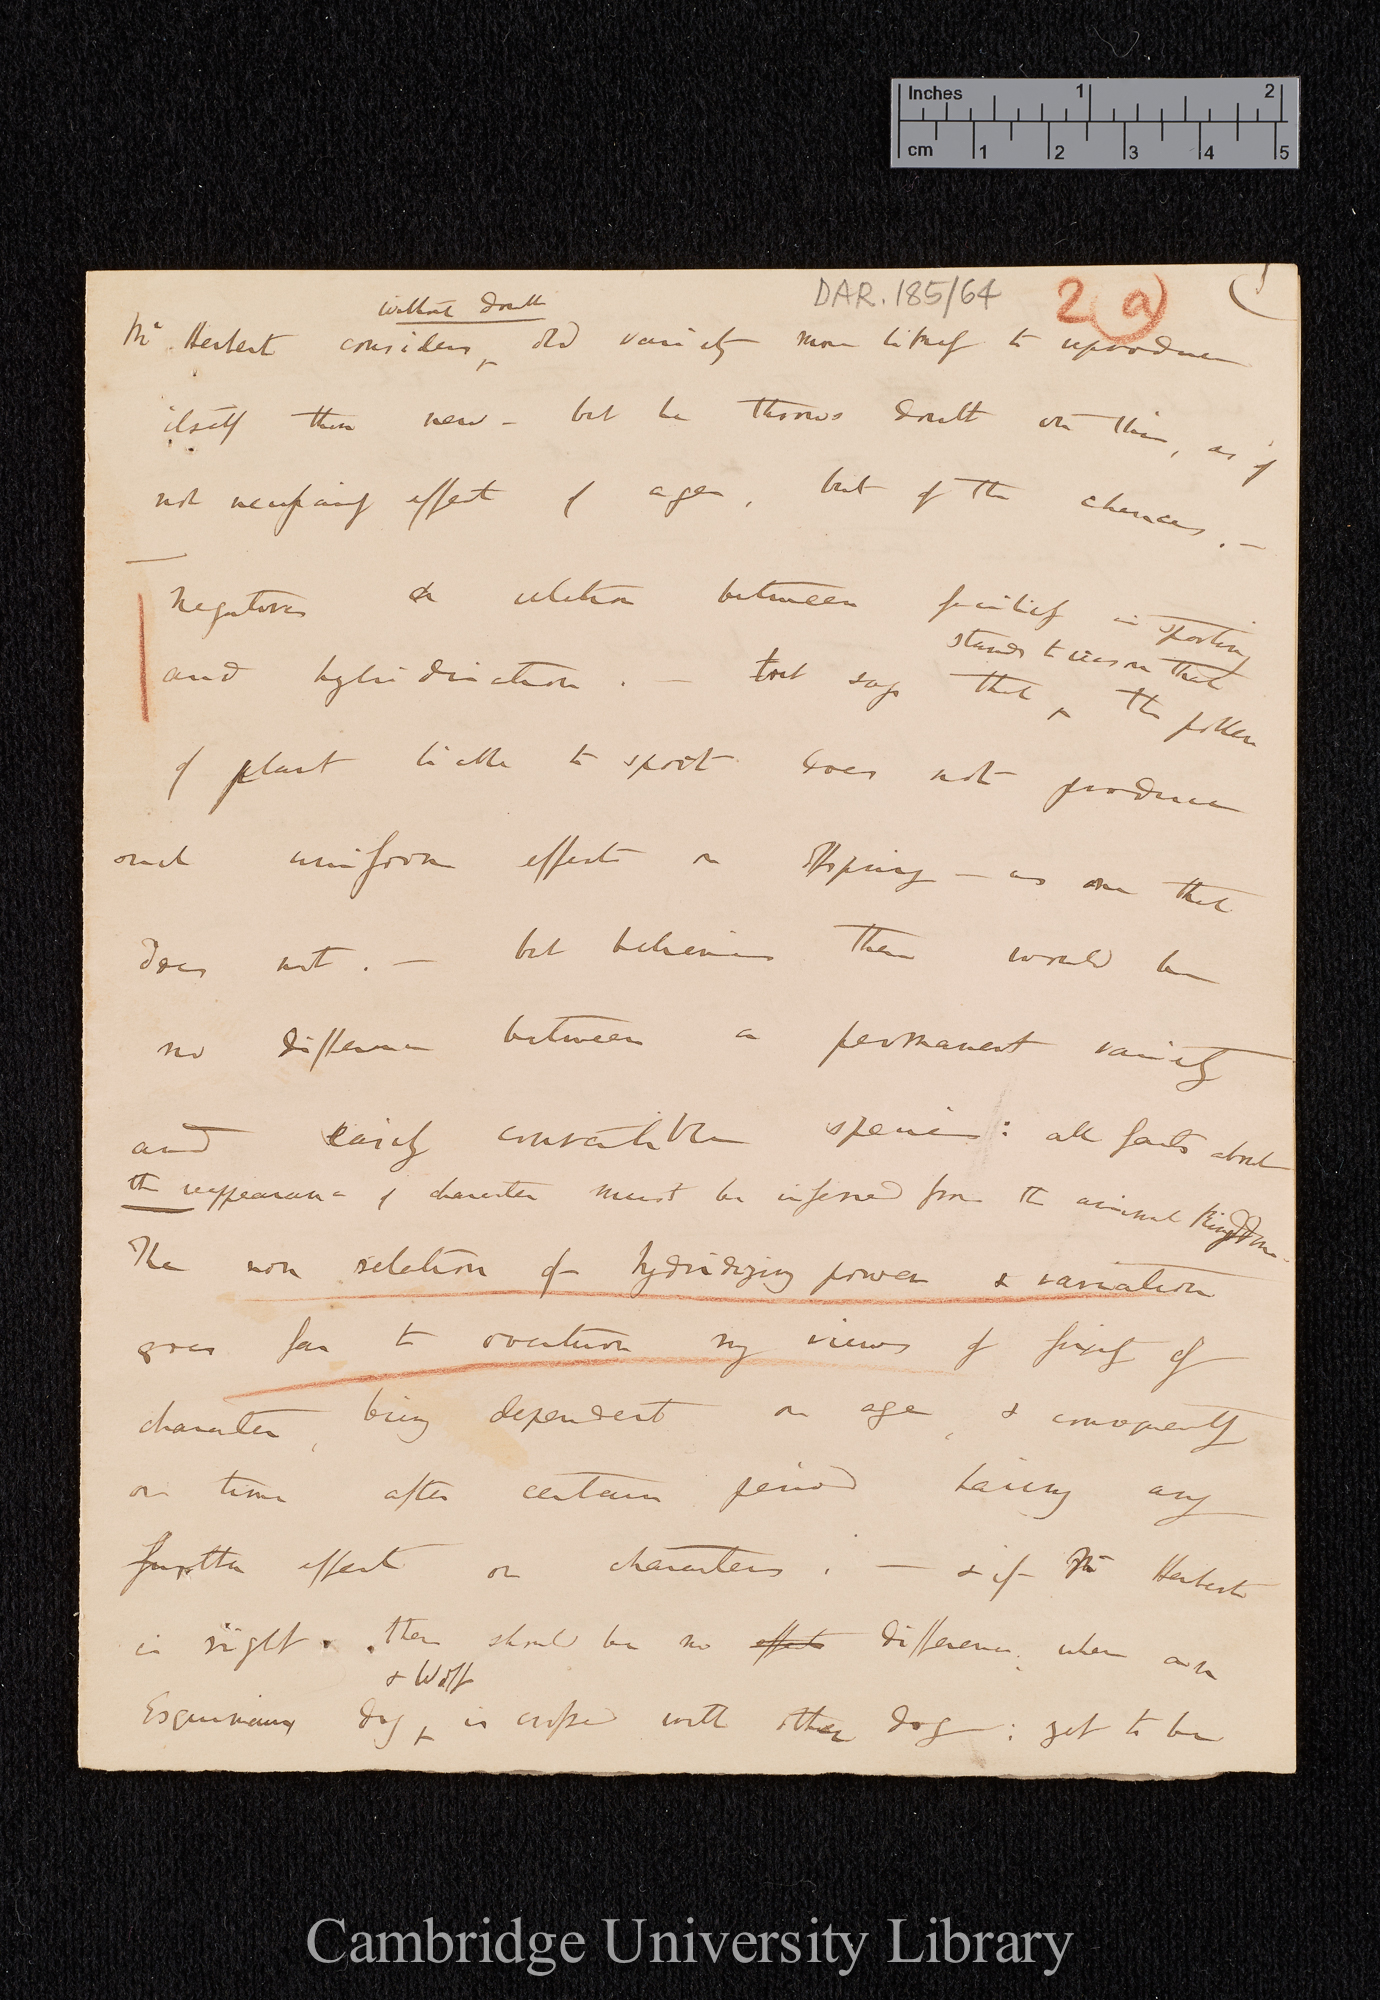 Inches 1 2
cm 1 2 3 4 5
DAR. 185/64 2 (a) 1
without doubt
Mr Herbert considers, old variety more likely to reproduce
itself than new – but he throws doubt on this, as if
not necessary effect of age, but of the chances. –
Negatives a relation between facility in sporting
stands to reason that
and hybridization. – but says that the pollen
of plant liable to sport does not produce
such uniform effects on offspring – as one that
does not. – but believes there would be
no difference between a permanent variety
and easily convertible species: all facts about
the reappearance of character must be inferred from the animal Kingdom.
The non relation of hybridizing power & variation
goes far to overturn my views of fixity of
character, being dependent on age, & consequently
on time after certain period having any
further effect on characters. – & if Mr Herbert
is right. there should be no effects difference, when an
& Wolf
Esquimaux dog, is crossed with other dog: yet to be
Cambridge University Library